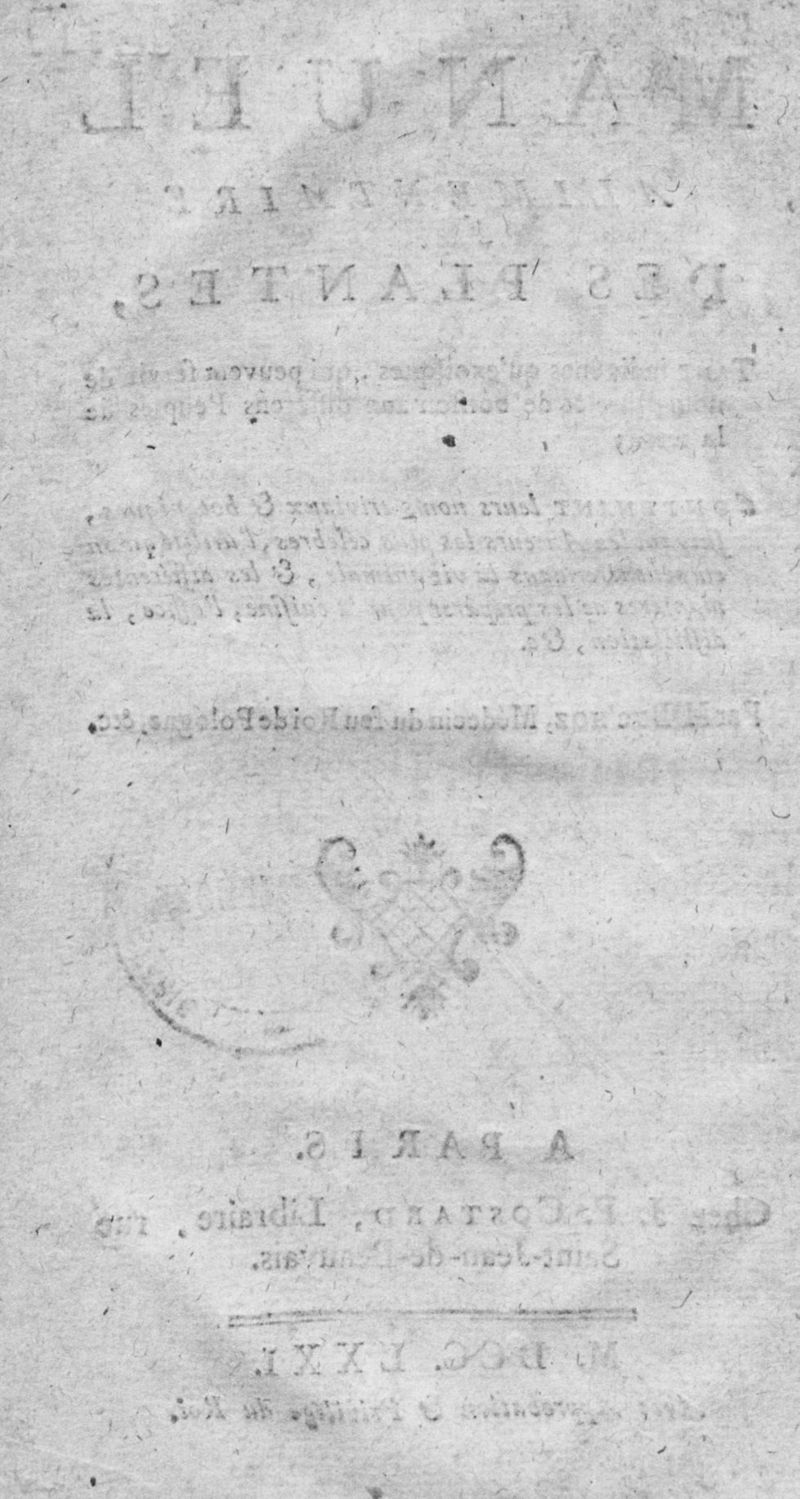 MANUEL
ALIMENTAIRE
DES PLANTES,
Tant indigènes qu'exotiques, qui peuvent servir de
nourriture & de boisson aux différens Peuples de
la
CONTENANT leurs noms triviaux & botaniques,
suivant les Auteurs les plus célèbres, l'
la vie animale, & les différentes
manieres de les préparer pour la cuisine, l'office, la
distillation, &c.
Par M. Buc'hoz, Médecin du feu Roi de Pologne, &c.
A PARIS.
Chez J. P. COSTARD, Libraire, rue
Saint-Jean-de-Beauvais.
M. DCC. LXXI.
Avec Approbation & Privilége du Roi.